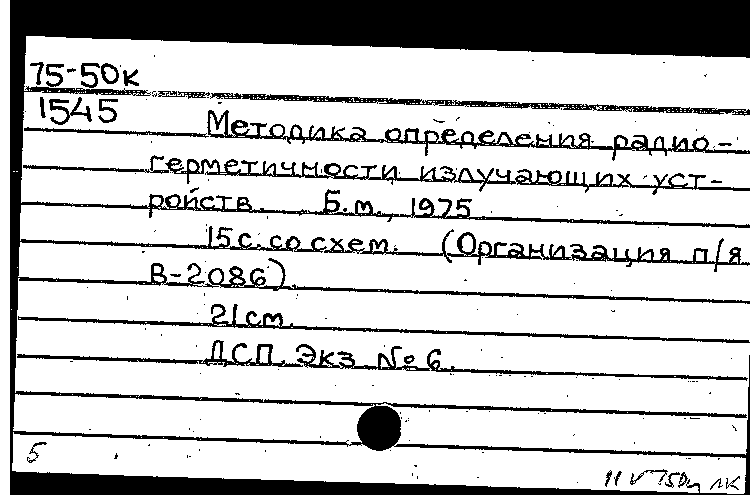 75-50к
1545
Методика определения радио-
герметичности излучающих уст-
ройств. Б.м., 1975
15 с. со схем. (Организация п/я
В-2086).
21 см.
ДСП. Экз № 6.
5